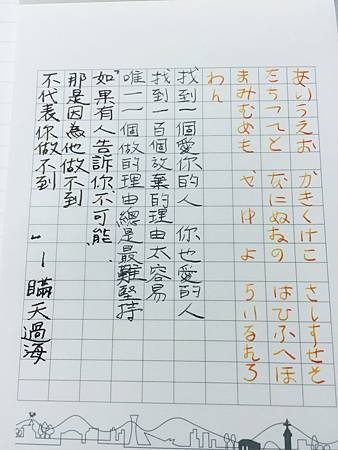 あいうえお かきくけこ さしすせそ
たちつてと なにぬねの はひふへほ
まみむめも や ゆ よ らりるれろ
わん
找到一個愛你的人 你也愛的人
找到一百個放棄的理由太容易
唯一一個做的理由總是最難堅持
"如果有人告訴你不可能.
那是因為他做不到
不代表你做不到 " - 瞞天過海